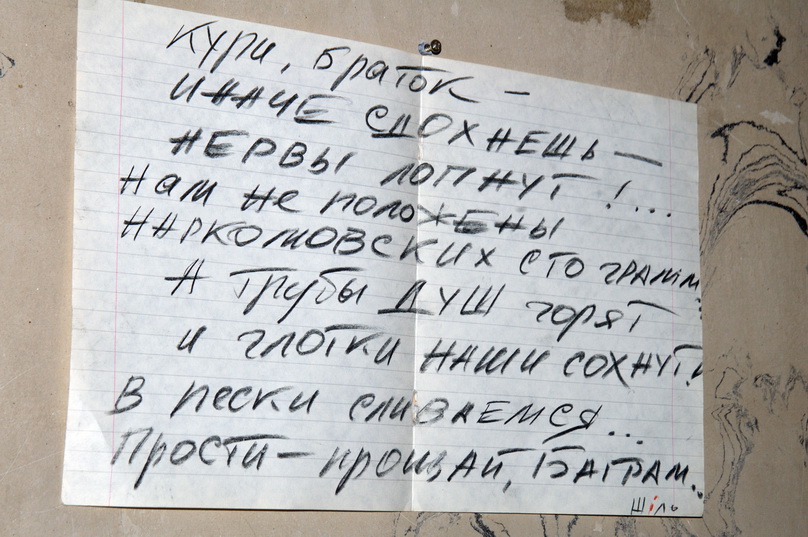 Кури, браток –
ИНАЧЕ СДОХНЕШЬ –
НЕРВЫ ЛОПНУТ!...
Нам не положены
НАРКОМОВСКИХ СТО ГРАММ..
А трубы ДУШ горят
и глотки НАШИ СОХНУТ!
В пески сливаемся...
Прости – прощай, БАГРАМ..
Шіль